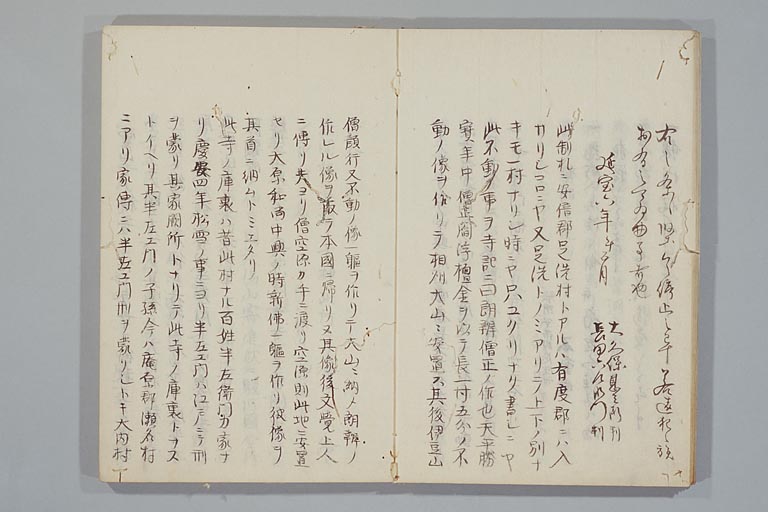 右之条々堅令停止之訖若違犯之族
於有之者可為曲事者也
延宝六年午ノ月
大久保甚兵衛判
長田六左衛門判
此制札ニ安倍郡足洗村トアルハ有度郡ニハ入
カリシコロニヤ又足洗トノミアリテノ上下ノ別ナ
キモ一村ナリシ時ニヤ只ユクリナリ書シニヤ
此不動ノ事ヲ寺記ニ曰朗辨僧正ノ作也天平勝
寳年中僧正閻浮檀金ヲ以テノ長一寸五分ノ不
動ノ像ヲ作リテ相州大山ニ安置ス其後伊豆山
僧願行又不動ノ像一軀ヲ作リテ大山ニ納ム朗辨ノ
作レル像ヲ本國ニ帰リ又其像後文覺上人
ニ傳リ夫ヨリ僧空源カ手ニ渡リ空源則此地ニ安置
セリ大原和尚中興ノ時新佛一軀ヲ作リ彼像ヲ
其首ニ納ムトミエタリ
此寺ノ庫裏ハ昔此村ナル百姓半左衛門カ家ナ
リ慶安四年松雪ノ事ニヨリ半左エ門ハ江戸ニテ刑
ヲ蒙リ其家闕所トナリテ此寺ノ庫裏トナス
トイヘリ其半左エ門ノ子孫今ハ庵原郡瀬名村
ニアリ家傳ニハ半左エ門刑ヲ蒙リシトキ大内村